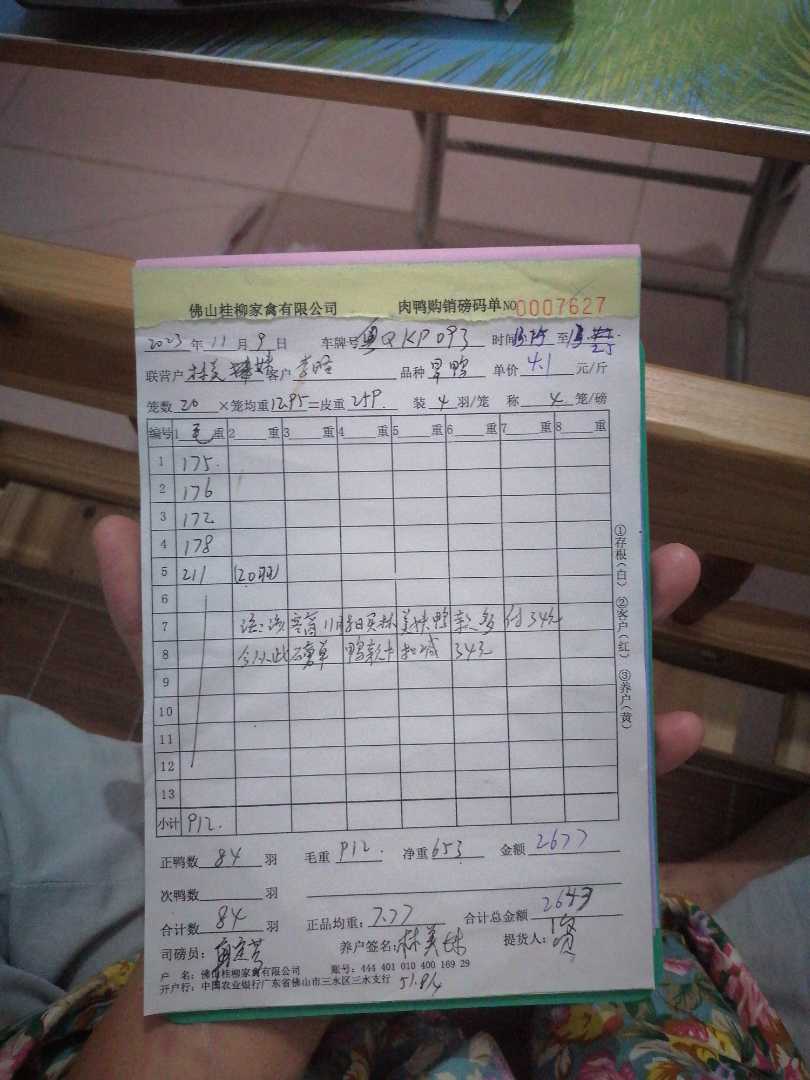 佛山桂柳家禽有限公司 肉鸭购销磅码单 NO 0007627
2023年11月9日 车牌号 粤QKP093 时间 至 25
联营户 林美 客户 李 品种 旱鸭 单价 4.1 元/斤
笼数 20 ×笼均重 12.95 =皮重 259. 装 4 羽/笼 称 4 笼/磅
编号 1 毛 重 2 重 3 重 4 重 5 重 6 重 7 重 8 重
1 175.
2 176
3 172
4 178
5 211 (20羽)
6
7 注:该客商11月8日买林美妹鸭款多付34元
8 今从此磅单鸭款中扣减34元
9
10
11
12
13
小计 912.
①存根(白) ②客户(红) ③养户(黄)
正鸭数 84 羽 毛重 912. 净重 653 金额 2677
次鸭数 羽
合计数 84 羽 正品均重: 7.77 合计总金额 2643
司磅员: 养户签名: 林美妹 提货人:
户 名: 佛山桂柳家禽有限公司 账号: 444 401 010 400 169 29
开户行: 中国农业银行广东省佛山市三水区三水支行